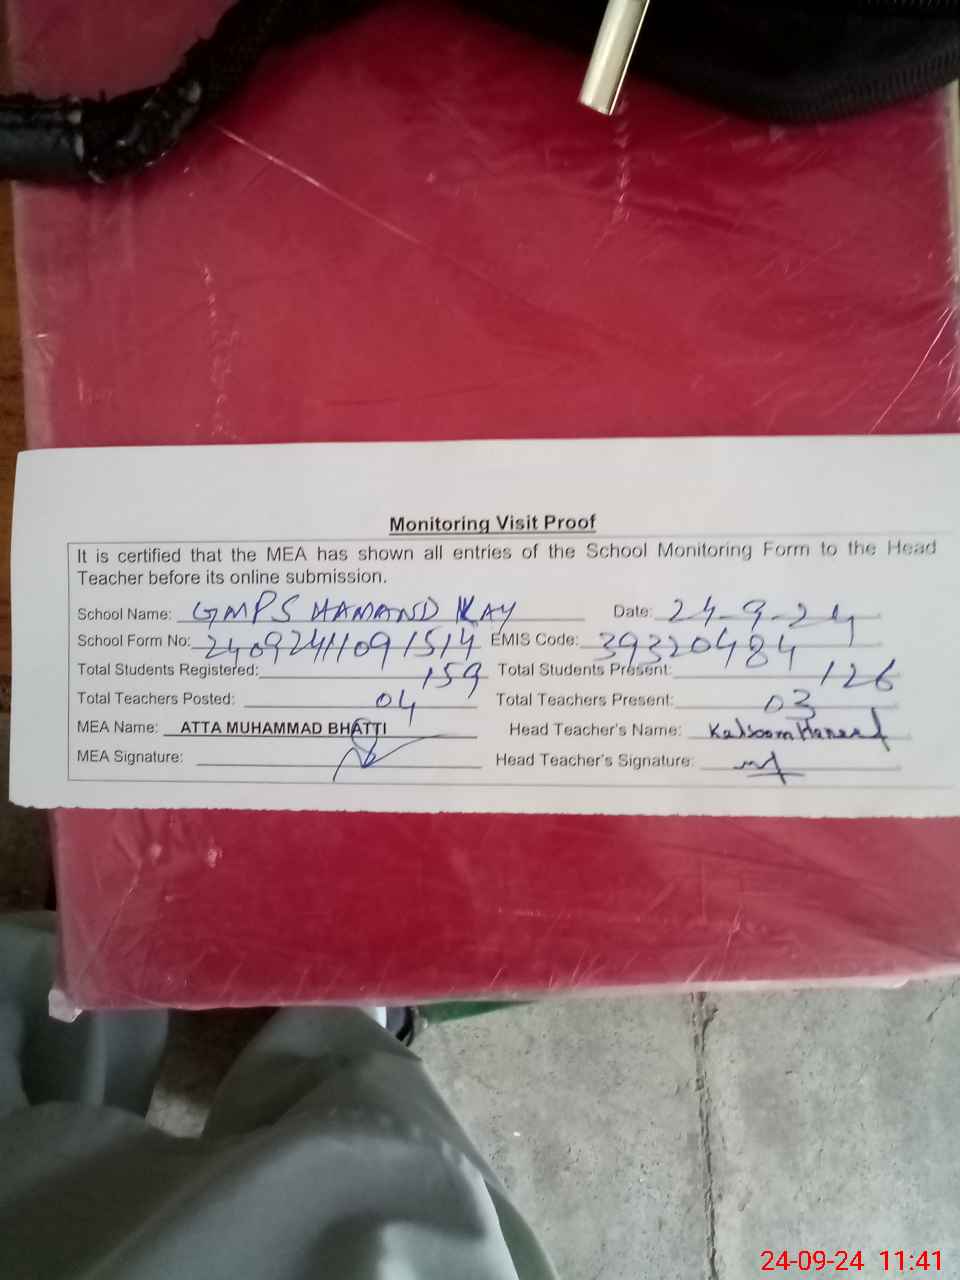 Monitoring Visit Proof
It is certified that the MEA has shown all entries of the School Monitoring Form to the Head
Teacher before its online submission.
School Name: GMPS HAMAND KAY Date: 24-9-24
School Form No: 24092411091514 EMIS Code: 39320484
Total Students Registered: 159 Total Students Present: 126
Total Teachers Posted: 04 Total Teachers Present: 03
MEA Name: ATTA MUHAMMAD BHATTI Head Teacher's Name: Kalsoom Haneef
MEA Signature: Head Teacher's Signature:
24-09-24 11:41